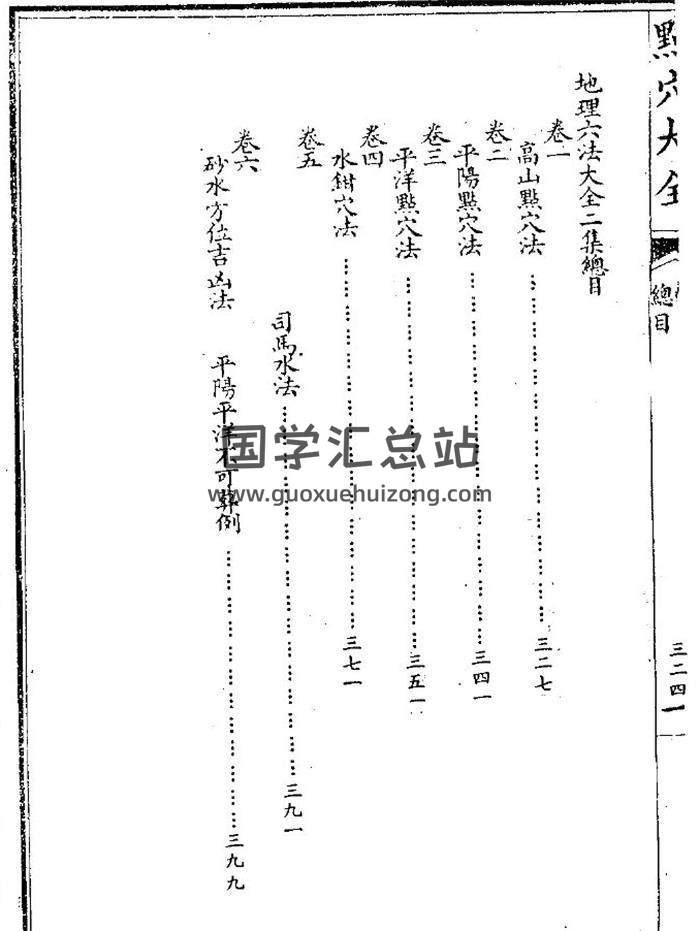 點穴大全
總目
三二四一
地理六法大全二集總目
卷一
高山點穴法……三二七
卷二
平陽點穴法……三四一
卷三
平洋點穴法……三五一
卷四
水鉗穴法……三七一
卷五
司馬水法……三九一
卷六
砂水方位吉凶法 平陽平洋不可葬例……三九九
国学汇总站
www.guoxuehuizong.com